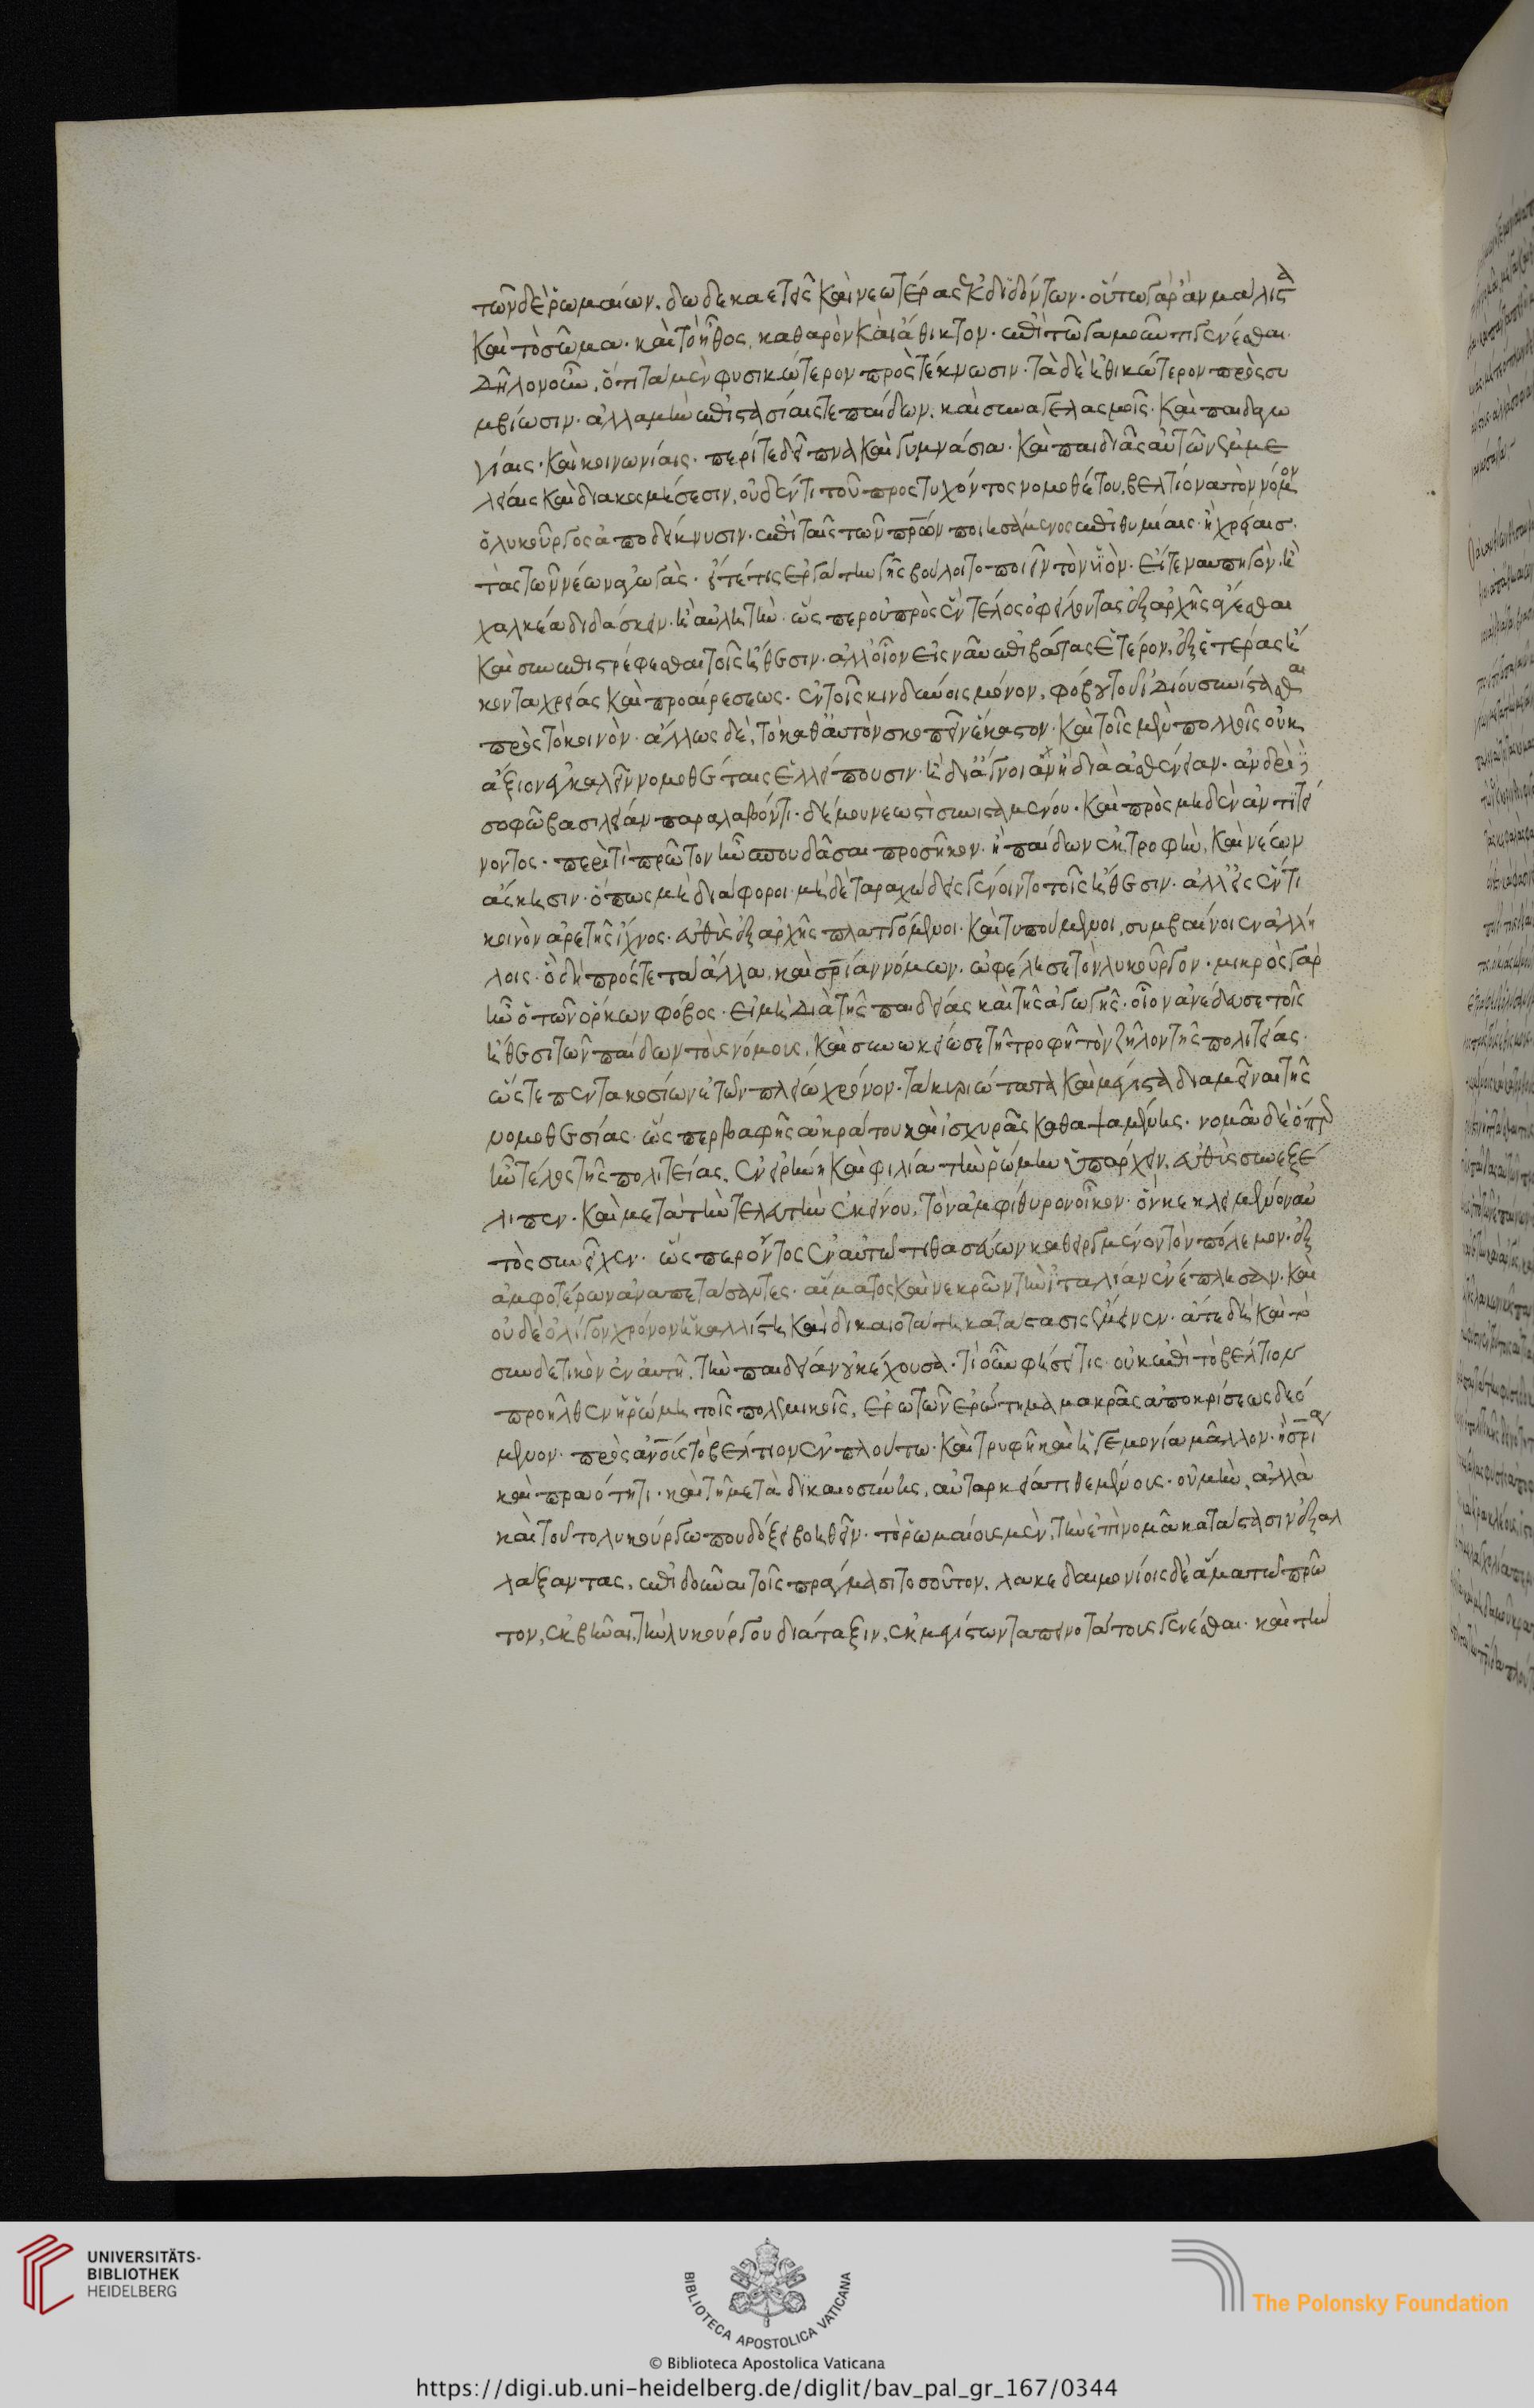 τῶν δὲ ῥωμαίων, δωδεκαετεῖς καὶ νεωτέρας ἐκδιδόντων· οὕτω γὰρ ἂν μάλιστα
καὶ τὸ σῶμα· καὶ τὸ ἦθος, καθαρὸν καὶ ἄθικτον· ἐπὶ τῶ γαμοῦντι γενέσθαι·
δῆλον οὖν, ὅτι τὰ μὲν φυσικώτερον πρὸς τέκνωσιν· τὰ δὲ ἠθικώτερον πρὸς συ
μβίωσιν· ἀλλὰ μὴν ἐπιστασίαις τε παίδων, καὶ συναγελασμοῖς· καὶ παιδαγω
γίαις· καὶ κοινωνίαις· περί τε δεῖπνα καὶ γυμνάσια· καὶ παιδιὰς αὐτῶν ἐμμε
λείαις καὶ διακοσμήσεσιν, οὐδέν τι τοῦ προστυχόντος νομοθέτου, βελτίονα τὸν νόμον
ὁ λυκοῦργος ἀποδείκνυσιν· ἐπὶ ταῖς τῶν πατέρων ποιησάμενος ἐπιθυμίαις· ἢ χρείαισ·
τὰς τῶν νέων ἀγωγὰς· εἴτέ τις ἐργάτην γῆς βούλοιτο ποιεῖν τὸν υἱὸν· εἴτε ναυπηγὸν· ἢ
χαλκέα διδάσκειν· ἢ αὐλητὴν· ὥς περ οὐ πρὸς ἓν τέλος ὀφείλοντας ἐξ αρχῆς ἄγεσθαι
καὶ συνεπιστρέφεσθαι τοῖς ἤθεσιν· ἀλλ' οἷον εἰς ναῦν ἐπιβάτας ἕτερον, ἐξ ἑτέρας ἥ
κοντα χρείας καὶ προαιρέσεως· ἐν τοῖς κινδύνοις μόνον, φόβῳ τοῦ ἰδίου συνίστασθαι
πρὸς τὸ κοινὸν· ἄλλως δὲ, τὸ καθ' αὑτὸν σκοπεῖν ἕκαστον· καὶ τοῖς μὲν πολλοῖς οὐκ
ἄξιον ἐγκαλεῖν νομοθέταις ἐλλείπουσιν· ἢ δι' ἄγνοιαν ἢ διὰ ἀσθένειαν· ἀνδρὶ
σοφῶ βασιλείαν παραλαβόντι· δήμου νεωστὶ συνισταμένου· καὶ πρὸς μηδὲν ἀντιτεί
νοντος· περὶ τί πρῶτον ἦν σπουδᾶσαι προσῆκον· ἢ παίδων ἐκτροφὴν, καὶ νέων
ἄσκησιν· ὅπως μὴ διάφοροι μηδὲ ταραχώδεις γένοιντο τοῖς ἤθεσιν· ἀλλ' εἰς ἕν τι
κοινὸν ἀρετῆς ἴχνος· εὐθὺς ἐξ αρχῆς πλαττόμενοι· καὶ τυπούμενοι, συμβαίνοιεν ἀλλή
λοις· ὃ δὴ πρός τε τὰ ἄλλα, καὶ σωτηρίαν νόμων· ὠφέλησε τὸν λυκοῦργον· μικρὸς γὰρ
ἦν ὁ τῶν ὅρκων φόβος· εἰ μὴ διὰ τῆς παιδείας καὶ τῆς ἀγωγῆς· οἷον ἀνέδωσε τοῖς
ἤθεσι τῶν παίδων τοὺς νόμους, καὶ συνωκείωσε τῆ τροφῆ τὸν ζῆλον τῆς πολιτείας·
ὥς τε πεντακοσίων ἐτῶν πλείω χρόνον· τὰ κυριώτατα καὶ μέγιστα διαμεῖναι τῆς
νομοθεσίας· ὥς περ βαφῆς ἀκράτου καὶ ἰσχυρᾶς καθαψαμένης· νομᾶ δὲ ὅπερ
ἦν τέλος τῆς πολιτείας, ἐν εἰρήνη καὶ φιλία τὴν ῥώμην ὑπάρχειν, εὐθὺς συνεξέ
λιπεν· καὶ μετὰ τὴν τελευτὴν ἐκείνου, τὸν ἀμφίθυρον οἶκον· ὃν κεκλειμένον αὐ
τὸς συνεῖχεν· ὥς περ ὄντος ἐν αὐτῶ τιθασεύων καθειργμένον τὸν πόλεμον· ἐξ
ἀμφοτέρων ἀναπετάσαντες· αἵματος καὶ νεκρῶν τὴν ἰταλίαν ἐνέπλησαν· καὶ
οὐδὲ ὀλίγον χρόνον ἡ καλλίστη καὶ δικαιοτάτη κατάστασις ἔμεινεν· ἅτε δὴ καὶ τὸ
συνδετικὸν ἐν αὑτῆ, τὴν παιδείαν οὐκ ἔχουσα· τί οὖν φήσει τις· οὐκ ἐπὶ τὸ βέλτιον
προῆλθεν ἡ ῥώμη τοῖς πολεμικοῖς, ἐρωτῶν ἐρώτημα μακρᾶς ἀποκρίσεως δεό
μενον· πρὸς ἀνθρώπους τὸ βέλτιον ἐν πλούτω· καὶ τρυφῆ καὶ ἡγεμονία μᾶλλον· ἢ σωτηρία
καὶ πραότητι· καὶ τῆ μετὰ δικαιοσύνης, αὐταρκεία τιθεμένους· οὐ μὴν, ἀλλὰ
καὶ τοῦτο λυκούργω που δόξει βοηθεῖν· τὸ ῥωμαίους μὲν, τὴν ἐπὶ νομᾶ κατάστασιν ἐξαλ
λάξαντας, ἐπιδοῦναι τοῖς πράγμασι τοσοῦτον, λακεδαιμονίους δὲ ἅμα τῶ πρῶ
τον, ἐκβῆναι, τὴν λυκούργου διάταξιν, ἐκ μεγίστων ταπεινοτάτους γενέσθαι· καὶ τὴν
UNIVERSITÄTS-
BIBLIOTHEK
HEIDELBERG
BIBLIOTECA APOSTOLICA VATICANA
The Polonsky Foundation
© Biblioteca Apostolica Vaticana
https://digi.ub.uni-heidelberg.de/diglit/bav_pal_gr_167/0344